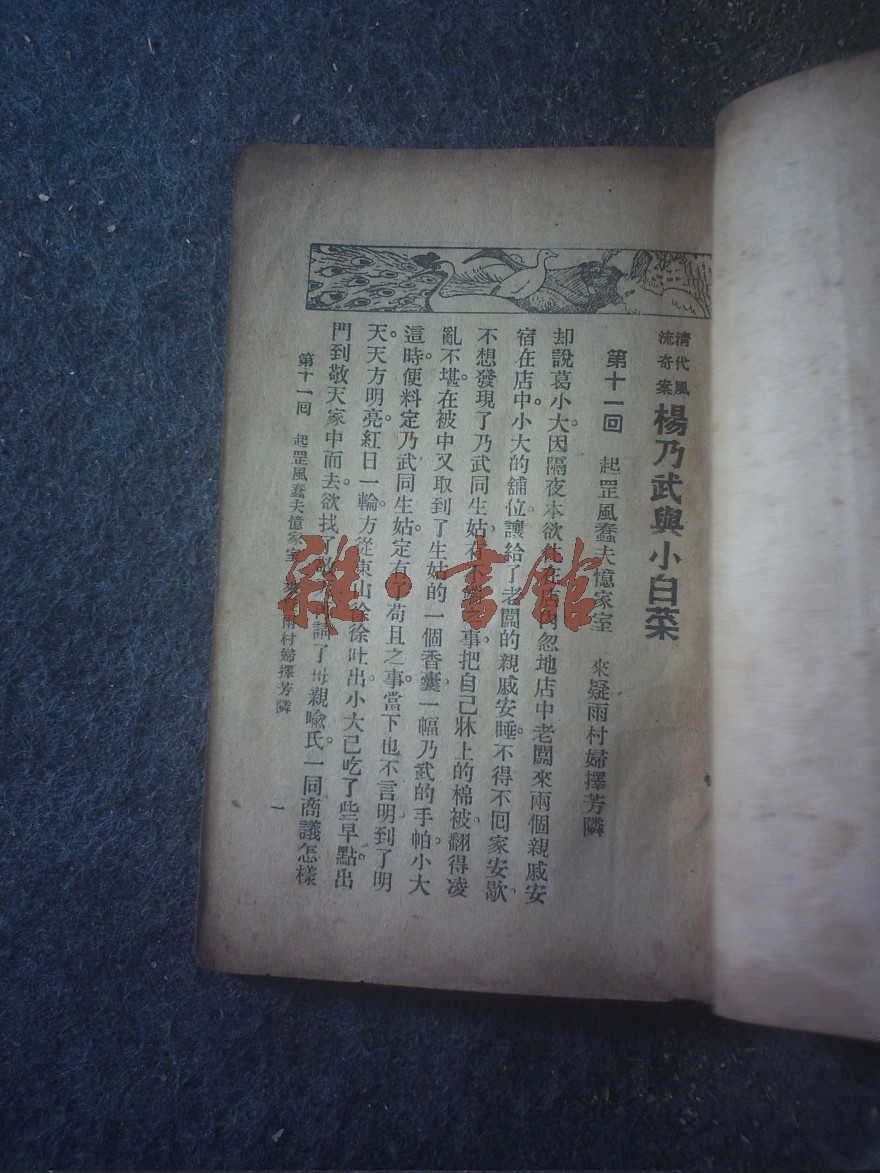 清代風
流奇案
楊乃武與小白菜
第十一回　起罡風蠢夫憶家室　來疑雨村婦擇芳隣
却說葛小大。因隔夜本欲住在店內忽地店中老闆來兩個親戚安
宿在店中小大的舖位。讓給了老闆的親戚安睡。不得不回家安歇。
不想發現了乃武同生姑有不事。把自己牀上的棉被翻得凌
亂不堪。在被中又取到了生姑的一個香囊。一幅乃武的手帕。小大
這時便料定乃武同生姑。定有了苟且之事。當下也不言明到了明
天。天方明亮。紅日一輪。方從東山徐徐吐出。小大已吃了些早點。出
門到敬天家中而去。欲找了請了母親喻氏。一同商議怎樣
第十一回　起罡風蠢夫憶家室　來疑雨村婦擇芳隣
一
雅·書館